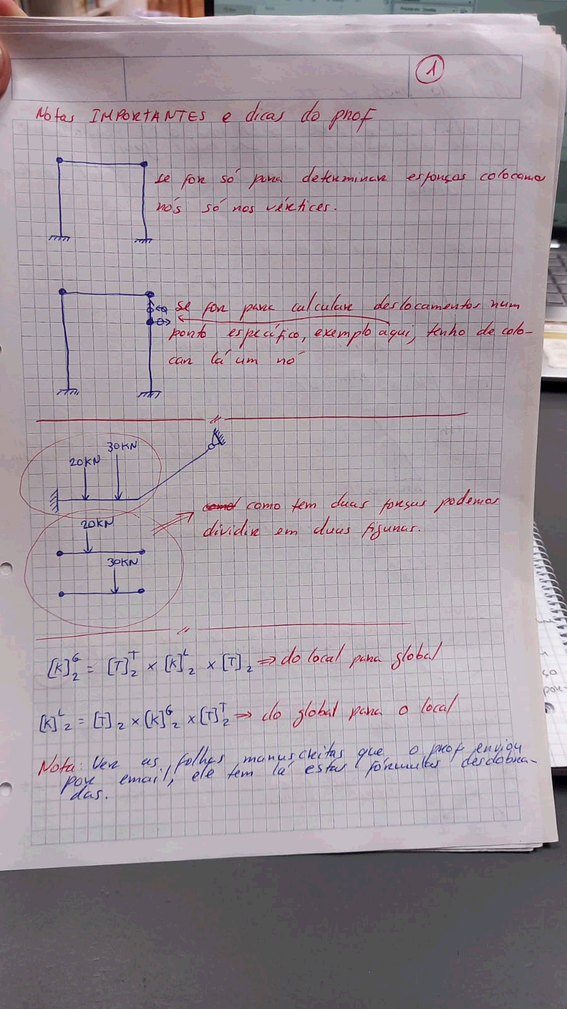 1
Notas IMPORTANTES e dicas do prof
se for só para determinar esforços colocamos
nós só nos vértices.
se for para calcular deslocamentos num
ponto específico, exemplo aqui, tenho de colo-
car lá um nó
30KN
20KN
como tem duas forças podemos
dividir em duas figuras.
20KN
30KN
[K]₂ᴳ = [T]₂ᵀ × [K]₂ᴸ × [T]₂ ⇒ do local para global
[K]ᴸ₂ = [T]₂ × [K]₂ᴳ × [T]₂ᵀ ⇒ do global para o local
Nota: Ver as folhas manuscritas que o prof enviou
por email, ele tem lá estas fórmulas desdobra-
das.